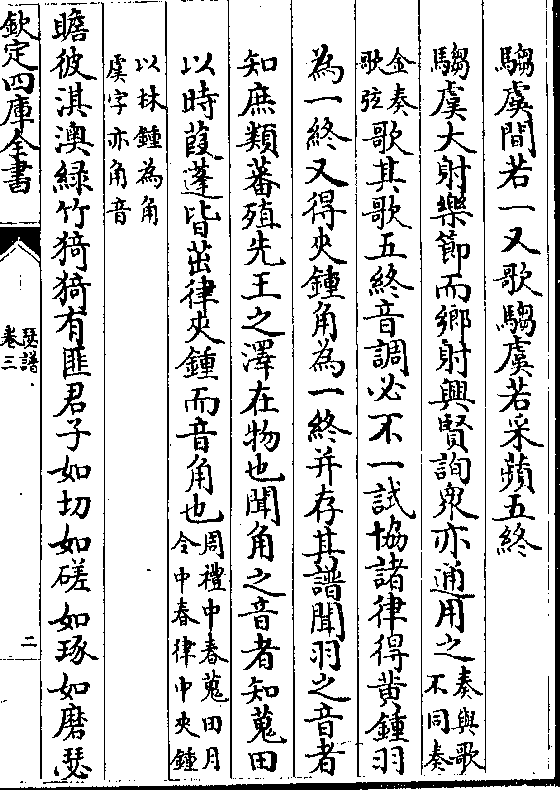 騶虞間若一又歌騶虞若采蘋五終
騶虞大射樂節而鄉射興賢詢衆亦通用之奏與歌
不同奏
金奏
歌弦歌其歌五終音調必不一試協諸律得黄鍾羽
為一終又得夾鍾角為一終并存其譜聞羽之音者
知庶類蕃殖先王之澤在物也聞角之音者知蒐田
以時葭蓬皆茁律夾鍾而音角也周禮中春蒐田月
令中春律中夾鍾
以林鍾為角
虞字亦角音
瞻彼淇澳緑竹猗猗有匪君子如切如磋如琢如磨瑟
欽定四庫全書
瑟譜
卷三
二